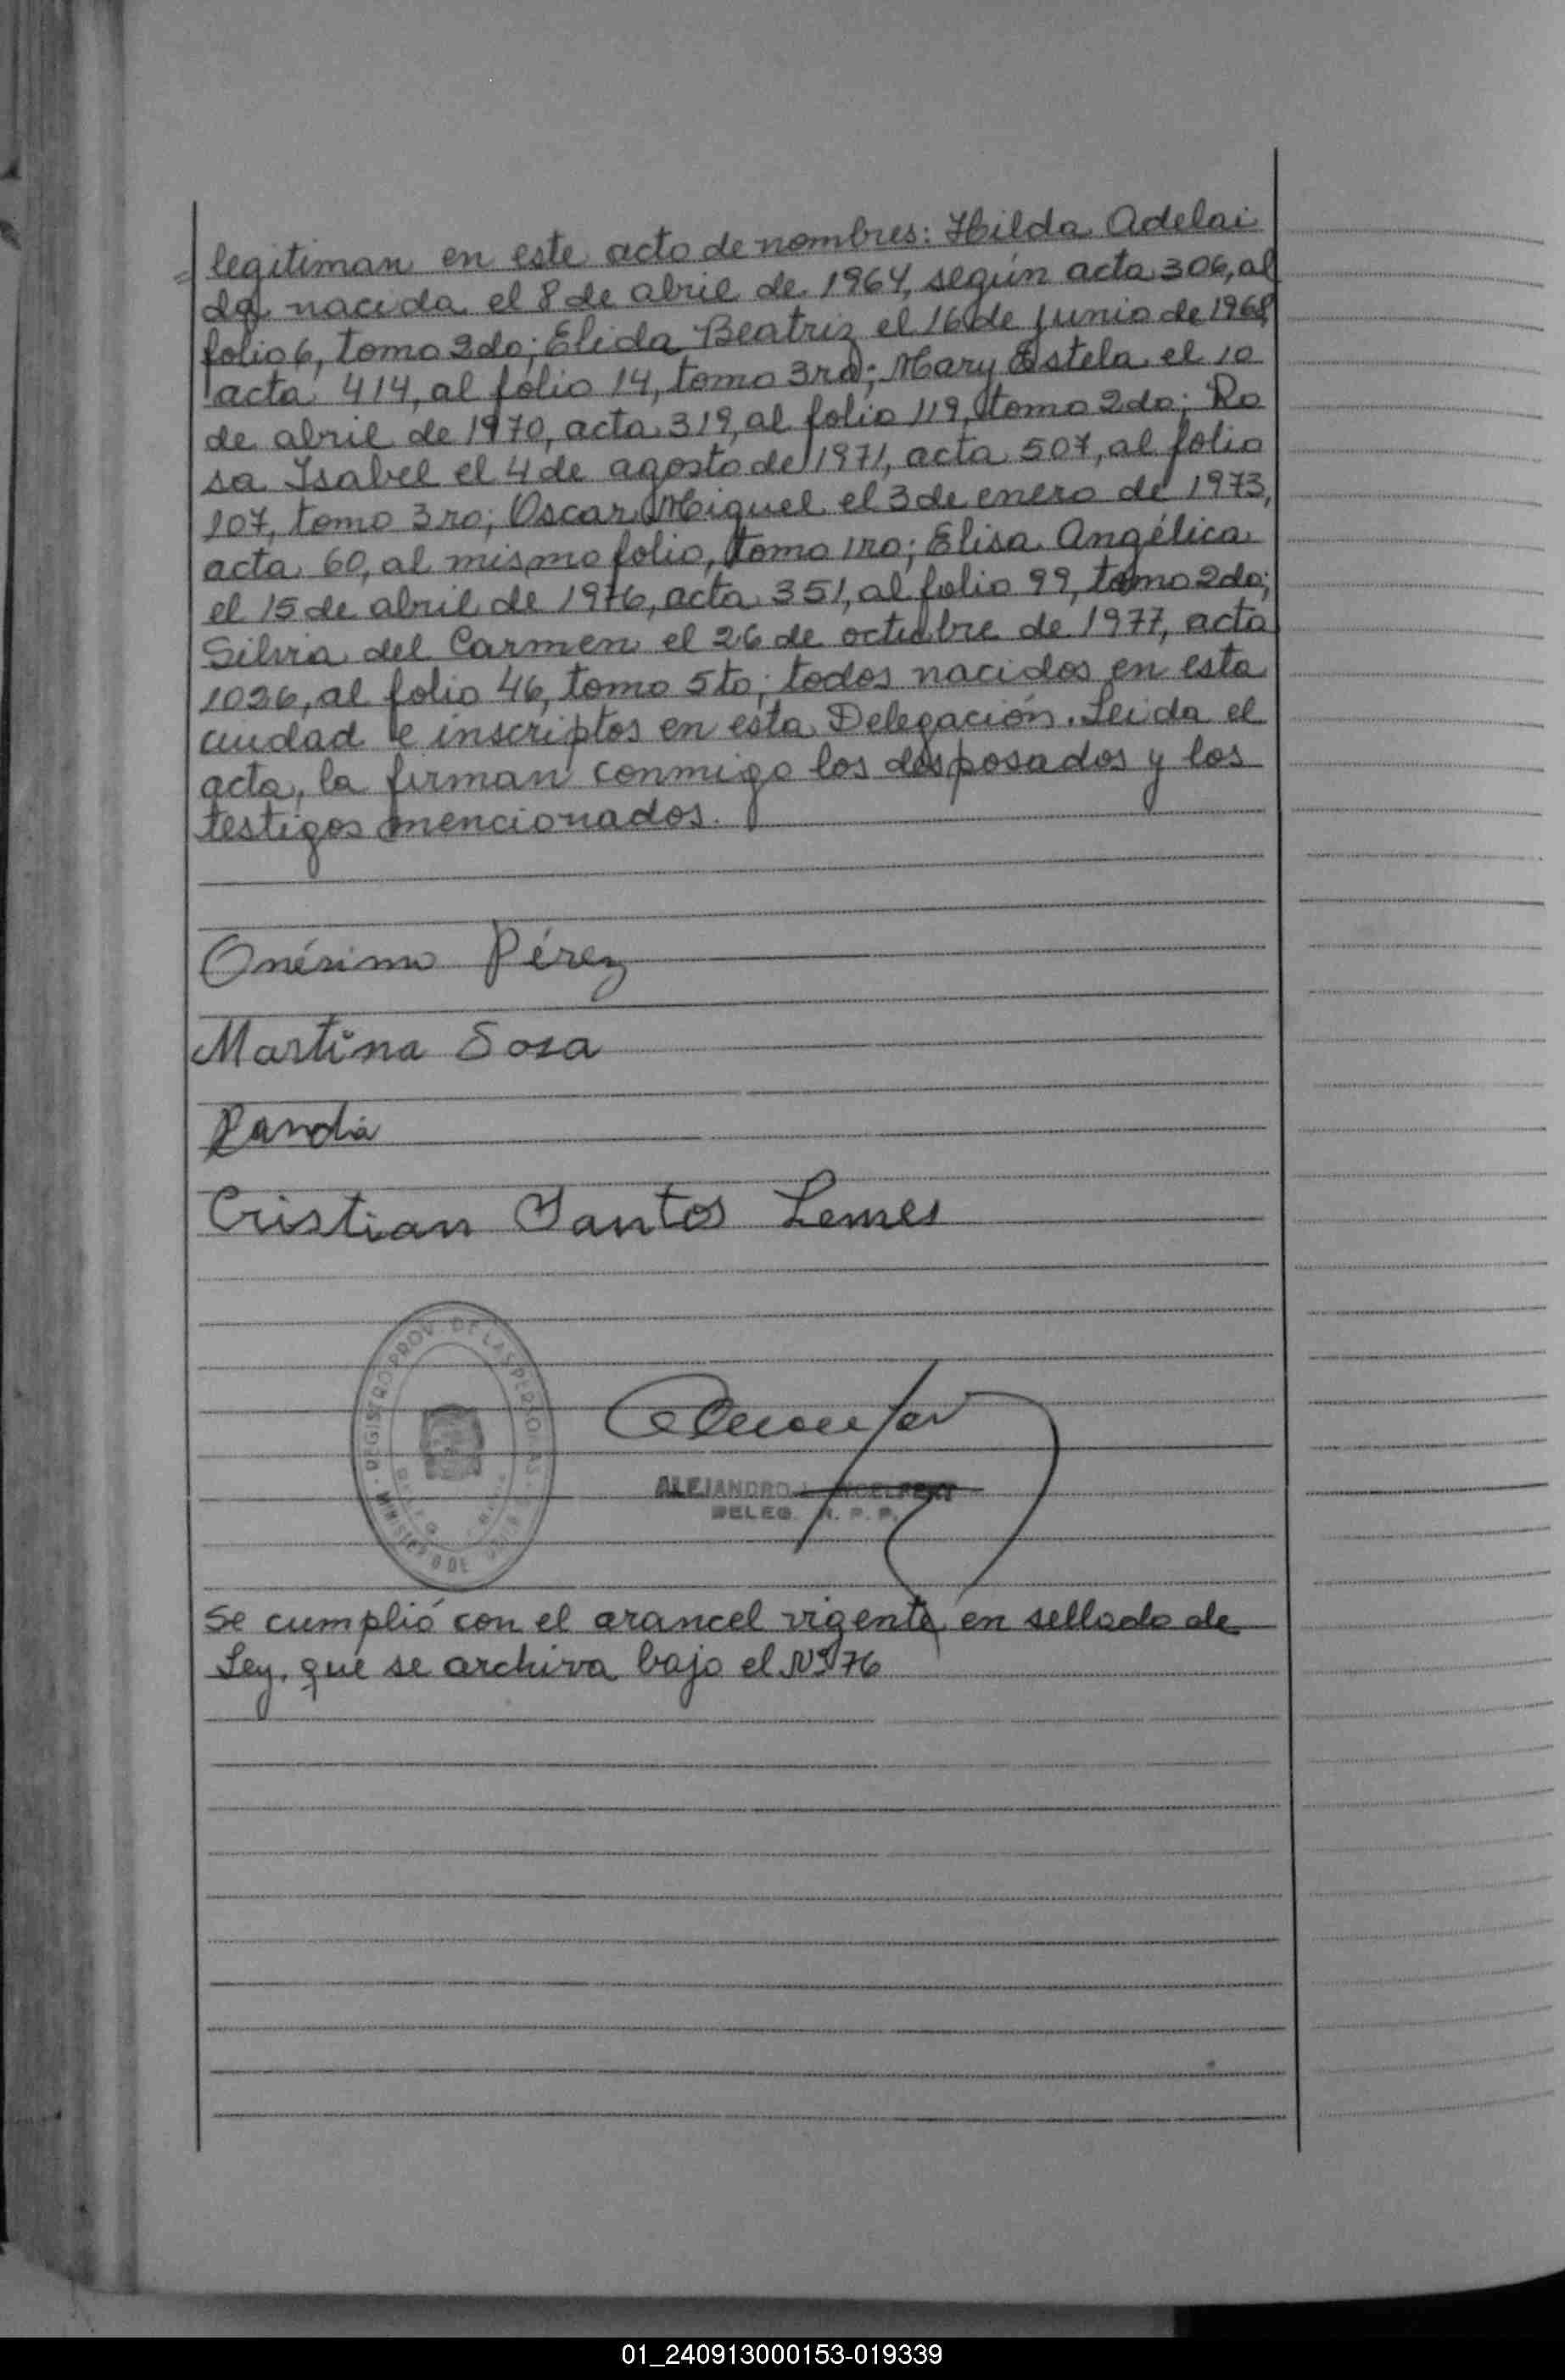 legitiman en este acto de nombres: Hilda Adelai
da nacida el 8 de abril de 1964, según acta 306, al
folio 6, tomo 2do; Elida Beatriz el 16 de junio de 1968,
acta 414, al folio 14, tomo 3ro; Mary Estela el 10
de abril de 1970, acta 319, al folio 119, tomo 2do; Ro
sa Isabel el 4 de agosto de 1971, acta 507, al folio
107, tomo 3ro; Oscar Miguel el 3 de enero de 1973,
acta 60, al mismo folio, tomo 1ro; Elisa Angélica
el 15 de abril de 1976, acta 351, al folio 99, tomo 2do;
Silvia del Carmen el 26 de octubre de 1977, acta
1026, al folio 46, tomo 5to; todos nacidos en esta
ciudad e inscriptos en esta Delegación. Leida el
acta, la firman conmigo los desposados y los
testigos mencionados.
Onésimo Pérez
Martina Sosa
Cristian Santos Lemes
REGISTRO PROV. DE LAS PERSONAS
MINISTERIO DE
ALEJANDRO
DELEG. R. P. P.
Se cumplió con el arancel vigente en sellado de
Ley, que se archiva bajo el Nº 76
01_240913000153-019339